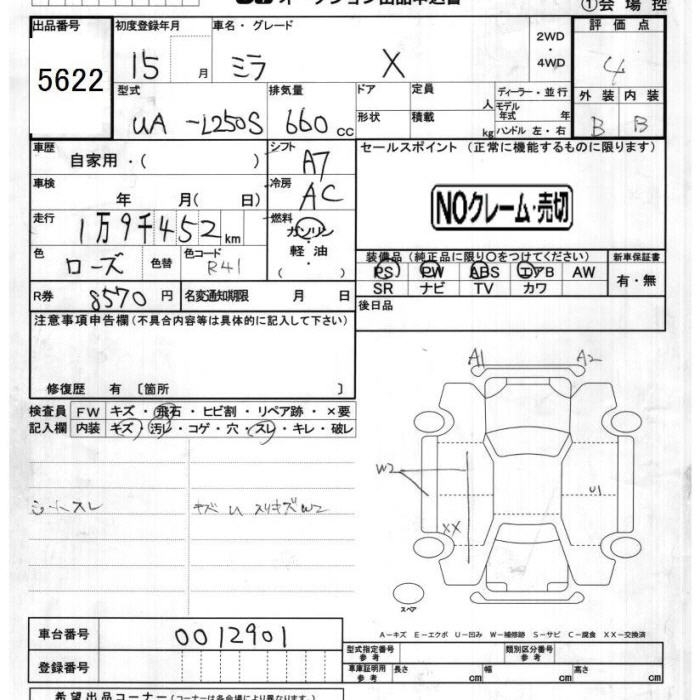 ①会場控
出品番号
5622
初度登録年月
15 月
車名・グレード
ミラ X
2WD
・
4WD
評価点
4
型式
UA-L250S
排気量
660 cc
ドア
定員
人
形状
積載
kg
ディーラー・並行
モデル年式 年
ハンドル 左・右
外装 内装
B B
車歴
自家用・( )
シフト
A7
セールスポイント (正常に機能するものに限ります)
車検
年 月( 日)
冷房
AC
NOクレーム・売切
走行
1万9千452km
燃料
ガソリン
・
軽油
( ・ )
色
ローズ
色替
色コード
R41
装備品(純正品に限り○をつけてください)
PS PW ABS エアB AW
SR ナビ TV カワ
新車保証書
有・無
R券
8570円
名変通知期限 月 日
後日品
注意事項申告欄(不具合内容等は具体的に記入して下さい)
修復歴 有 〔箇所 〕
検査員
記入欄
FW キズ・飛石・ヒビ割・リペア跡・×要
内装 キズ・汚レ・コゲ・穴・スレ・キレ・破レ
シートスレ
キズ U スリキズW2
A1 A2
W2
U1
XX
スペア
A−キズ E−エクボ U−凹み W−補修跡 S−サビ C−腐食 XX−交換済
車台番号
0012901
登録番号
型式指定番号
参考
類別区分番号
参考
車庫証明用
参考
長さ cm 幅 cm 高さ cm
希望出品コーナー(コーナーは各会場により異なります。)